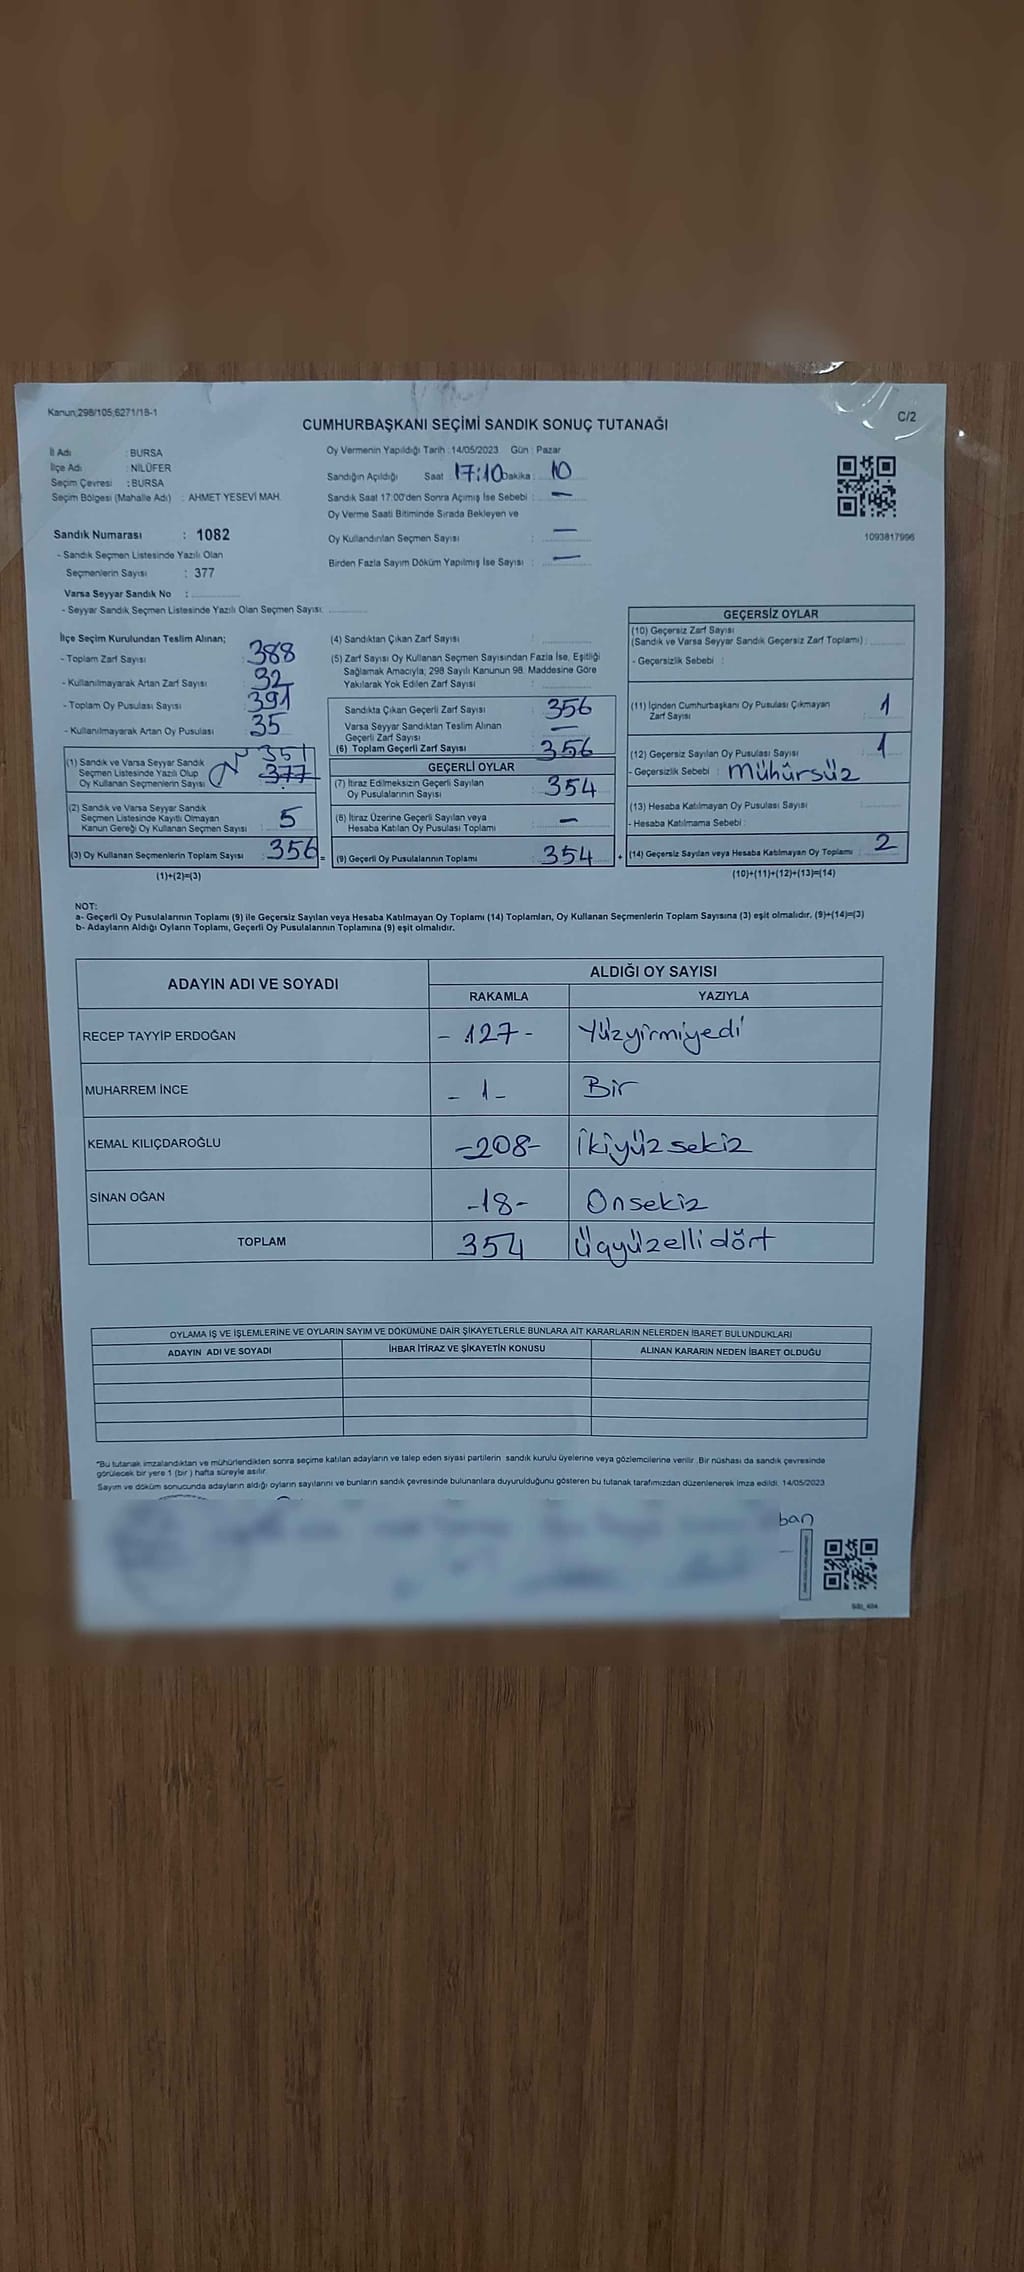 Kanun;298/105,6271/18-1
C/2
CUMHURBAŞKANI SEÇİMİ SANDIK SONUÇ TUTANAĞI
İl Adı : BURSA
İlçe Adı : NİLÜFER
Seçim Çevresi : BURSA
Seçim Bölgesi (Mahalle Adı) : AHMET YESEVİ MAH.
Oy Vermenin Yapıldığı Tarih : 14/05/2023 Gün : Pazar
Sandığın Açıldığı Saat 17:10 Dakika : 10
Sandık Saat 17:00'den Sonra Açımış İse Sebebi : —
Oy Verme Saati Bitiminde Sırada Bekleyen ve
Oy Kullandırılan Seçmen Sayısı : —
Birden Fazla Sayım Döküm Yapılmış İse Sayısı : —
1093817996
Sandık Numarası : 1082
- Sandık Seçmen Listesinde Yazılı Olan
Seçmenlerin Sayısı : 377
Varsa Seyyar Sandık No :
- Seyyar Sandık Seçmen Listesinde Yazılı Olan Seçmen Sayısı:
İlçe Seçim Kurulundan Teslim Alınan;
- Toplam Zarf Sayısı : 388
- Kullanılmayarak Artan Zarf Sayısı : 32
- Toplam Oy Pusulası Sayısı : 391
- Kullanılmayarak Artan Oy Pusulası : 35
(1) Sandık ve Varsa Seyyar Sandık
Seçmen Listesinde Yazılı Olup
Oy Kullanan Seçmenlerin Sayısı 351 377
(2) Sandık ve Varsa Seyyar Sandık
Seçmen Listesinde Kayıtlı Olmayan
Kanun Gereği Oy Kullanan Seçmen Sayısı : 5
(3) Oy Kullanan Seçmenlerin Toplam Sayısı : 356 =
(1)+(2)=(3)
(4) Sandıktan Çıkan Zarf Sayısı :
(5) Zarf Sayısı Oy Kullanan Seçmen Sayısından Fazla İse, Eşitliği
Sağlamak Amacıyla; 298 Sayılı Kanunun 98. Maddesine Göre
Yakılarak Yok Edilen Zarf Sayısı :
Sandıkta Çıkan Geçerli Zarf Sayısı : 356
Varsa Seyyar Sandıktan Teslim Alınan
Geçerli Zarf Sayısı : —
(6) Toplam Geçerli Zarf Sayısı : 356
GEÇERLİ OYLAR
(7) İtiraz Edilmeksizin Geçerli Sayılan
Oy Pusulalarının Sayısı : 354
(8) İtiraz Üzerine Geçerli Sayılan veya
Hesaba Katılan Oy Pusulası Toplamı : —
(9) Geçerli Oy Pusulalarının Toplamı : 354 +
GEÇERSİZ OYLAR
(10) Geçersiz Zarf Sayısı
(Sandık ve Varsa Seyyar Sandık Geçersiz Zarf Toplamı) :
- Geçersizlik Sebebi :
(11) İçinden Cumhurbaşkanı Oy Pusulası Çıkmayan
Zarf Sayısı : 1
(12) Geçersiz Sayılan Oy Pusulası Sayısı : 1
- Geçersizlik Sebebi : mühürsüz
(13) Hesaba Katılmayan Oy Pusulası Sayısı :
- Hesaba Katılmama Sebebi :
(14) Geçersiz Sayılan veya Hesaba Katılmayan Oy Toplamı : 2
(10)+(11)+(12)+(13)=(14)
NOT:
a- Geçerli Oy Pusulalarının Toplamı (9) ile Geçersiz Sayılan veya Hesaba Katılmayan Oy Toplamı (14) Toplamları, Oy Kullanan Seçmenlerin Toplam Sayısına (3) eşit olmalıdır. (9)+(14)=(3)
b- Adayların Aldığı Oyların Toplamı, Geçerli Oy Pusulalarının Toplamına (9) eşit olmalıdır.
ADAYIN ADI VE SOYADI
ALDIĞI OY SAYISI
RAKAMLA YAZIYLA
RECEP TAYYİP ERDOĞAN -127- Yüzyirmiyedi
MUHARREM İNCE -1- Bir
KEMAL KILIÇDAROĞLU -208- İkiyüz sekiz
SİNAN OĞAN -18- Onsekiz
TOPLAM 354 Üçyüzelli dört
OYLAMA İŞ VE İŞLEMLERİNE VE OYLARIN SAYIM VE DÖKÜMÜNE DAİR ŞİKAYETLERLE BUNLARA AİT KARARLARIN NELERDEN İBARET BULUNDUKLARI
ADAYIN ADI VE SOYADI İHBAR İTİRAZ VE ŞİKAYETİN KONUSU ALINAN KARARIN NEDEN İBARET OLDUĞU
*Bu tutanak imzalandıktan ve mühürlendikten sonra seçime katılan adayların ve talep eden siyasi partilerin sandık kurulu üyelerine veya gözlemcilerine verilir. Bir nüshası da sandık çevresinde
görülecek bir yere 1 (bir ) hafta süreyle asılır.
Sayım ve döküm sonucunda adayların aldığı oyların sayılarını ve bunların sandık çevresinde bulunanlara duyurulduğunu gösteren bu tutanak tarafımızdan düzenlenerek imza edildi. 14/05/2023
ban